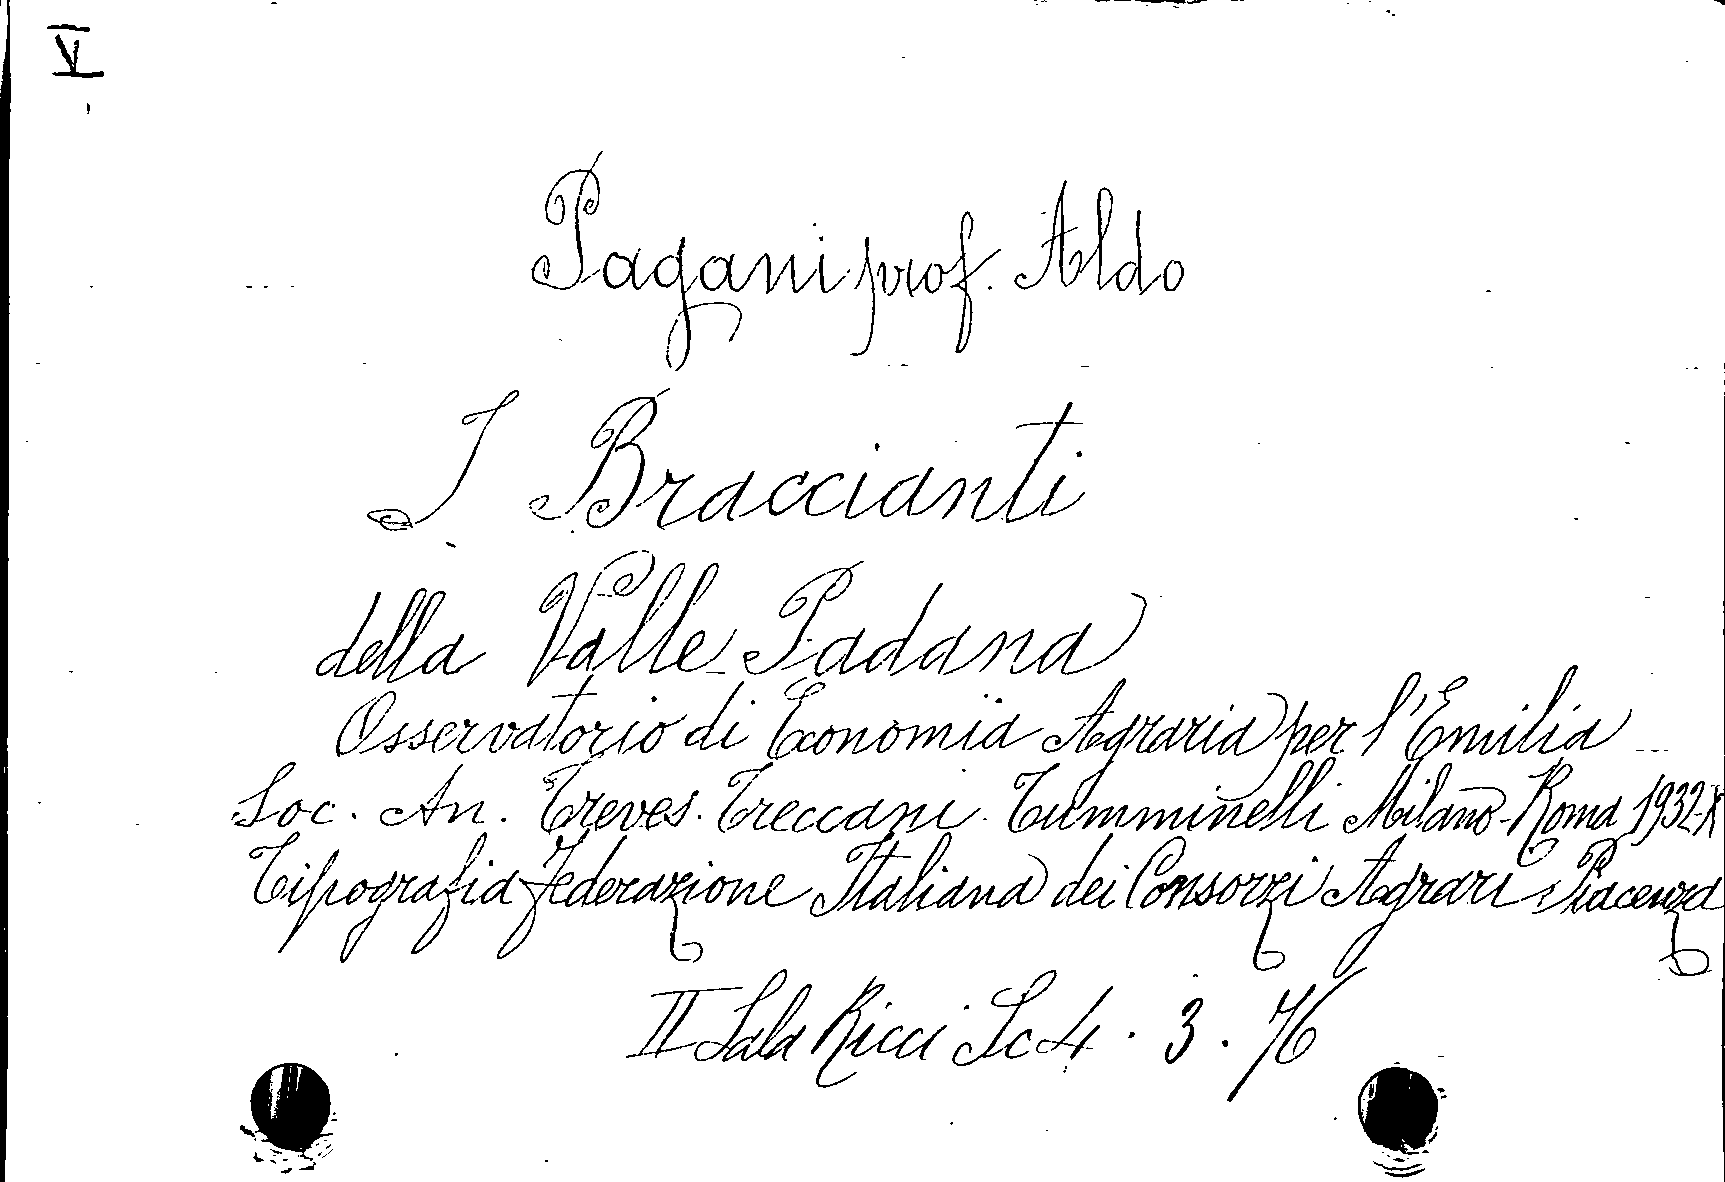 V
Pagani prof. Aldo
I Braccianti
della Valle Padana
Osservatorio di Economia Agraria per l'Emilia
Soc. An. Treves. Treccani. Tumminelli Milano-Roma 1932-X
Tipografia Federazione Italiana dei Consorzi Agrari Piacenza
II Sala Ricci Sc 4 . 3 . 76